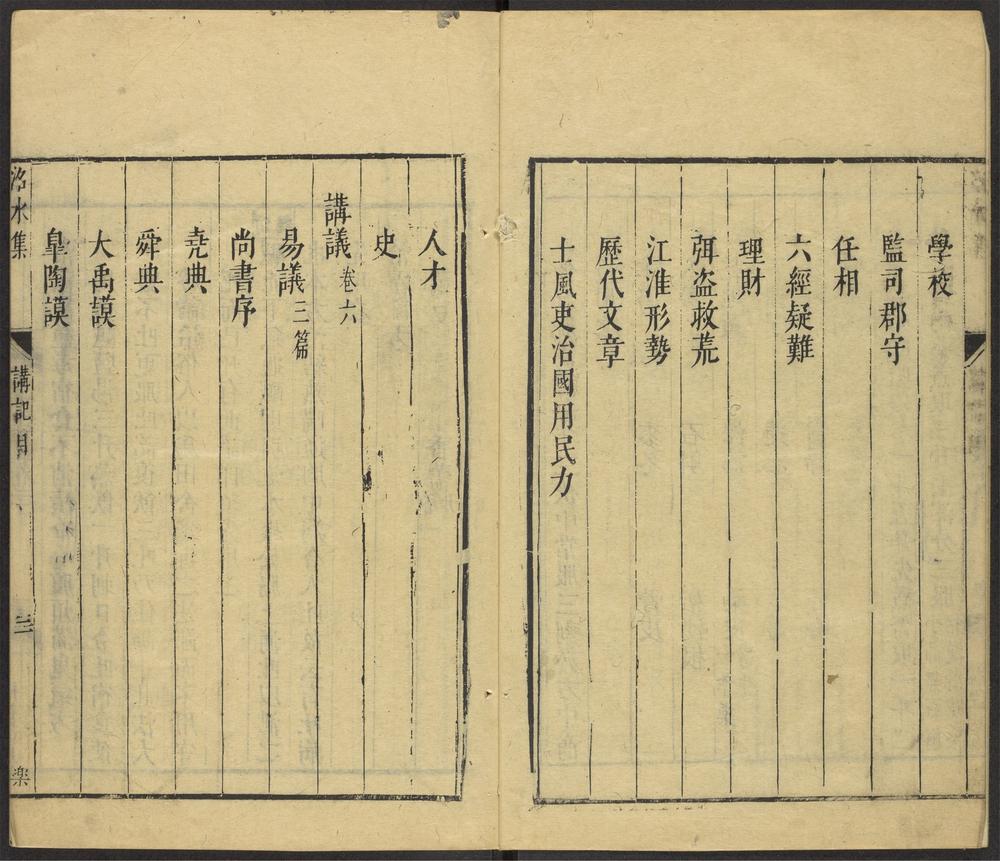 學校
監司郡守
任相
六經疑難
理財
弭盗救荒
江淮形勢
歷代文章
士風吏治國用民力
人才
史
講議 卷六
易議 三篇
尚書序
堯典
舜典
大禹謨
臯陶謨
洺水集
講記目
三